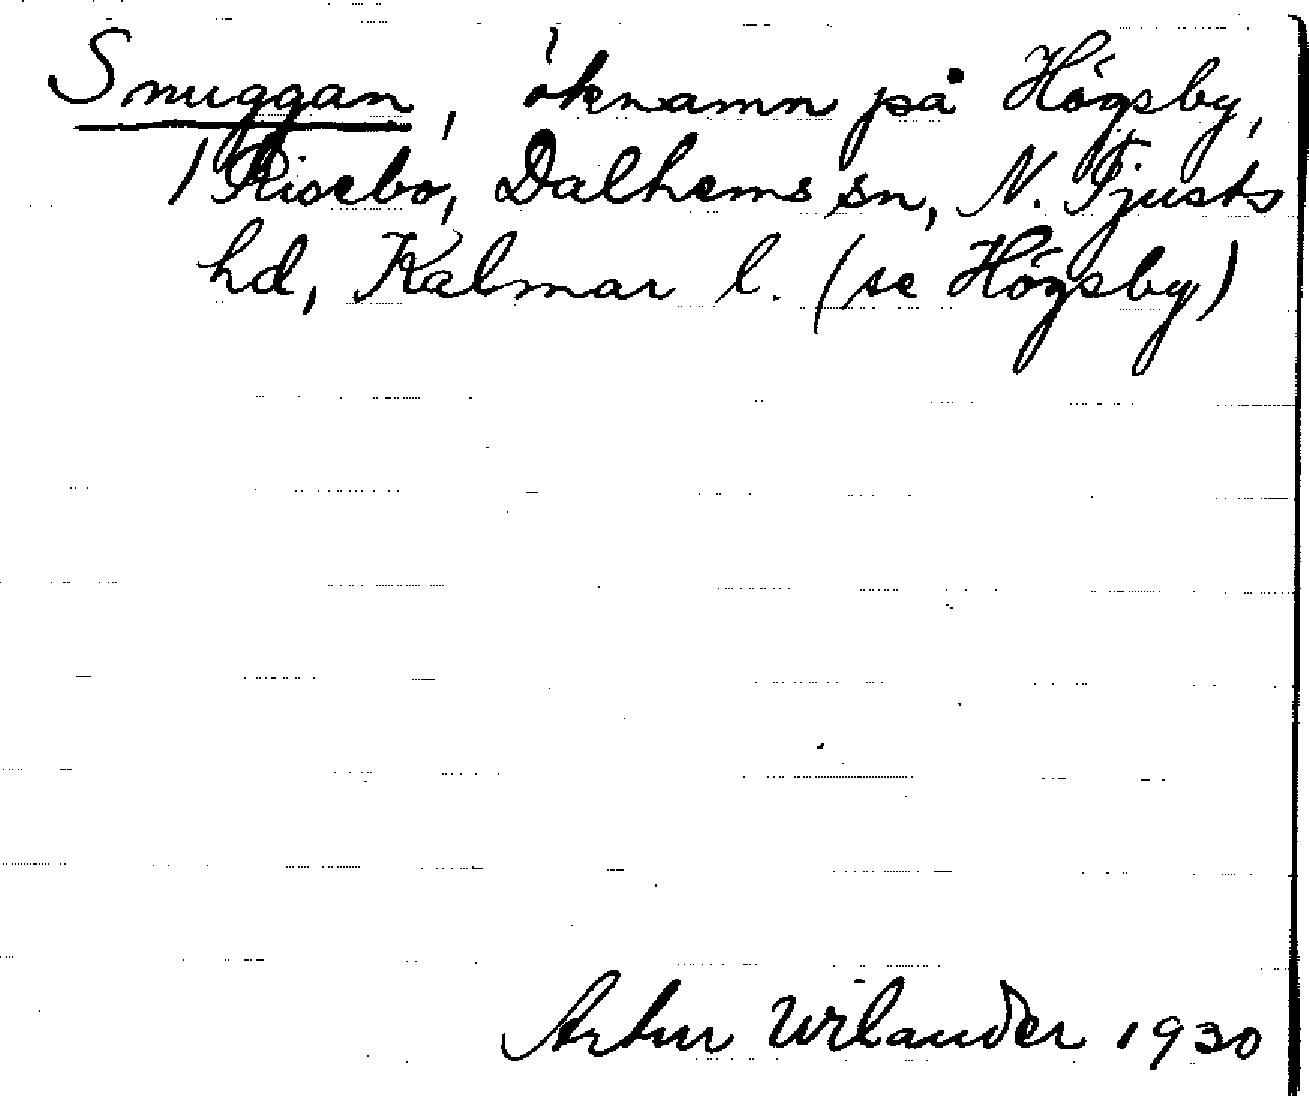 Snuggan, öknamn på Högsby,
/ Risebo, Dalhems sn, N. Tjusts
hd, Kalmar l. (se Högsby)
Artur Wilander 1930